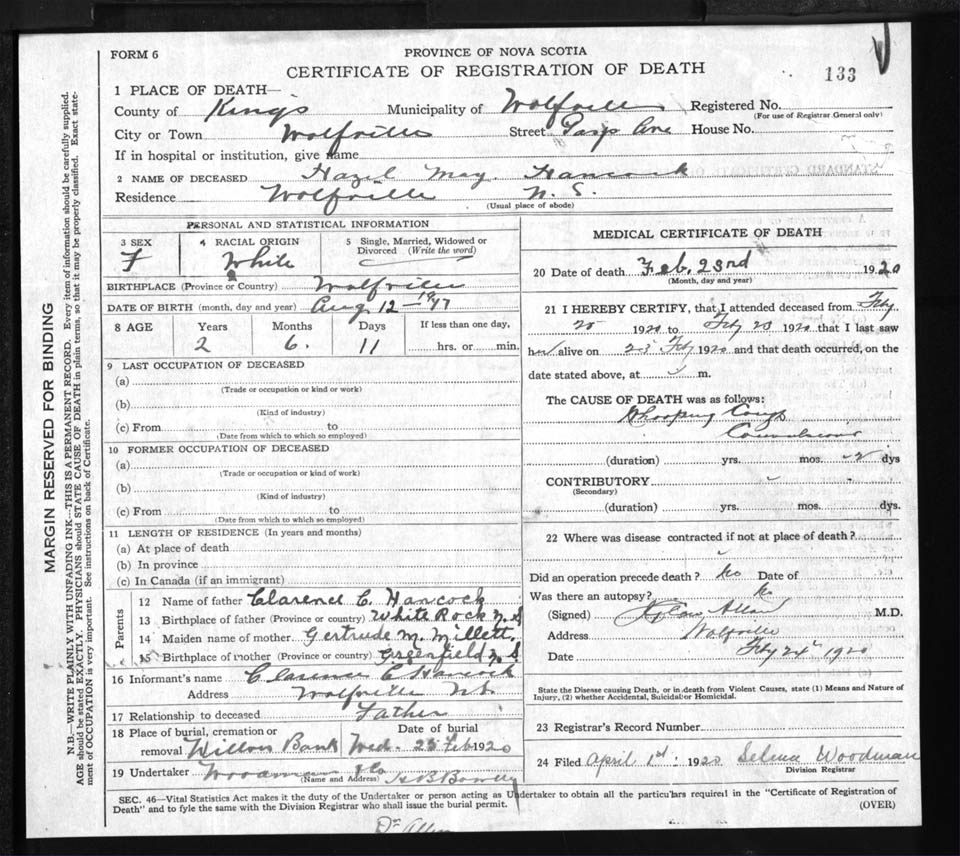 FORM 6
PROVINCE OF NOVA SCOTIA
CERTIFICATE OF REGISTRATION OF DEATH
133
1 PLACE OF DEATH—
County of Kings Municipality of Wolfville Registered No.
(For use of Registrar General only)
City or Town Wolfville Street Gasp Ave House No.
If in hospital or institution, give name
2 NAME OF DECEASED Hazel May Hancock
Residence Wolfville N. S.
(Usual place of abode)
PERSONAL AND STATISTICAL INFORMATION
3 SEX 4 RACIAL ORIGIN 5 Single, Married, Widowed or Divorced (Write the word)
F White
BIRTHPLACE (Province or Country) Wolfville
DATE OF BIRTH (month, day and year) Aug 12 1917
8 AGE Years Months Days If less than one day,
2 6. 11 hrs. or min.
9 LAST OCCUPATION OF DECEASED
(a)
(Trade or occupation or kind or work)
(b)
(Kind of industry)
(c) From to
(Date from which to which so employed)
10 FORMER OCCUPATION OF DECEASED
(a)
(Trade or occupation or kind of work)
(b)
(Kind of industry)
(c) From to
(Date from which to which so employed)
11 LENGTH OF RESIDENCE (In years and months)
(a) At place of death
(b) In province
(c) In Canada (if an immigrant)
Parents
12 Name of father Clarence C. Hancock
13 Birthplace of father (Province or country) White Rock N. S
14 Maiden name of mother Gertrude M. Millett.
15 Birthplace of mother (Province or country) Greenfield N S
16 Informant's name Clarence C Hancock
Address Wolfville N.S.
17 Relationship to deceased Father
18 Place of burial, cremation or removal Willow Bank
Date of burial
Wed. 25 Feb 1920
19 Undertaker Woodman & Co
(Name and Address)
MEDICAL CERTIFICATE OF DEATH
20 Date of death Feb. 23rd 1920
(Month, day and year)
21 I HEREBY CERTIFY, that I attended deceased from Feby
1920 to Feby 23 1920 that I last saw
her alive on 23 Feby 1920 and that death occurred, on the
date stated above, at m.
The CAUSE OF DEATH was as follows:
Whooping Cough
Convulsions
(duration) yrs. mos. 2 dys
CONTRIBUTORY
(Secondary)
(duration) yrs. mos. dys.
22 Where was disease contracted if not at place of death?
Did an operation precede death? No Date of
Was there an autopsy? No
(Signed) Allan M.D.
Address Wolfville
Date Feby 24th 1920
State the Disease causing Death, or in death from Violent Causes, state (1) Means and Nature of
Injury, (2) whether Accidental, Suicidal or Homicidal.
23 Registrar's Record Number
24 Filed April 1st 1920 Selina Woodman
Division Registrar
SEC. 46—Vital Statistics Act makes it the duty of the Undertaker or person acting as Undertaker to obtain all the particulars required in the "Certificate of Registration of
Death" and to fyle the same with the Division Registrar who shall issue the burial permit.
(OVER)
MARGIN RESERVED FOR BINDING
N.B.—WRITE PLAINLY WITH UNFADING INK—THIS IS A PERMANENT RECORD. Every item of information should be carefully supplied.
AGE should be stated EXACTLY. PHYSICIANS should STATE CAUSE OF DEATH in plain terms, so that it may be properly classified. Exact state-
ment of OCCUPATION is very important. See instructions on back of Certificate.